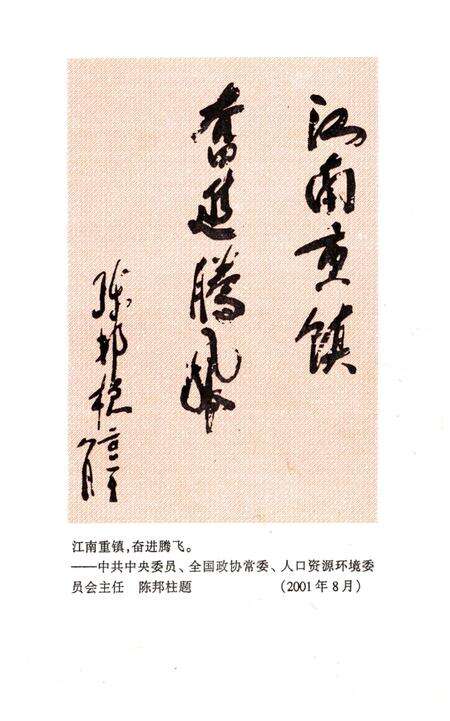 江南重镇
奋进腾飞
陈邦柱
江南重镇,奋进腾飞。
——中共中央委员、全国政协常委、人口资源环境委
员会主任 陈邦柱题 (2001年8月)